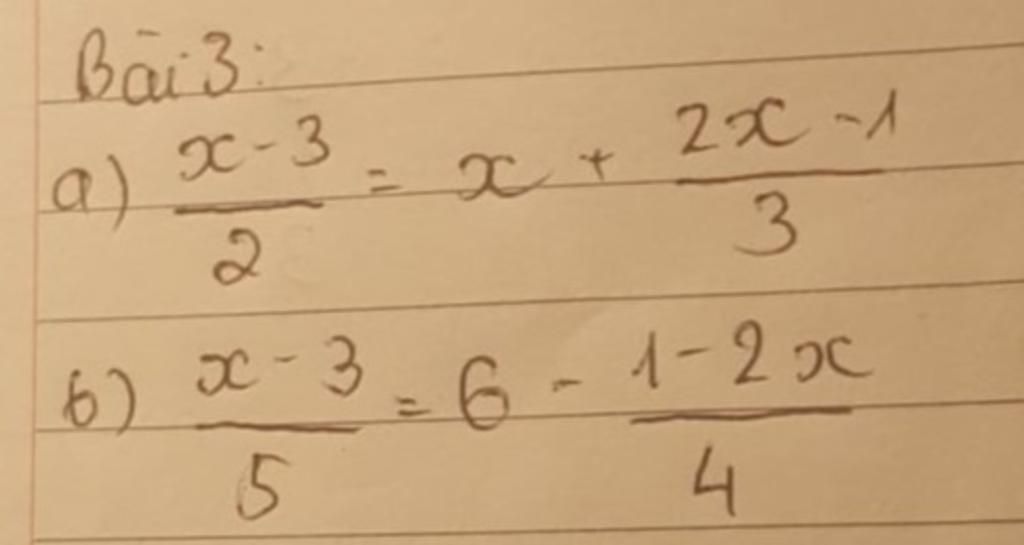 Bài 3:
a) \frac{x-3}{2} = x + \frac{2x-1}{3}
b) \frac{x-3}{5} = 6 - \frac{1-2x}{4}